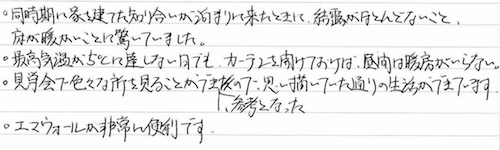 。同時期に家を建てた知り合いが泊まりに来たときに、結露がほとんどないこと、
床が暖かいことに驚いていました。
。最高気温が5℃に達しない日でも、カーテンを開けておけば、昼間は暖房がいらない。
。見学会で色々な所を見ることができ後ので、思い描いていた通りの生活ができています。
参考となった
。エマウォールが非常に便利です。